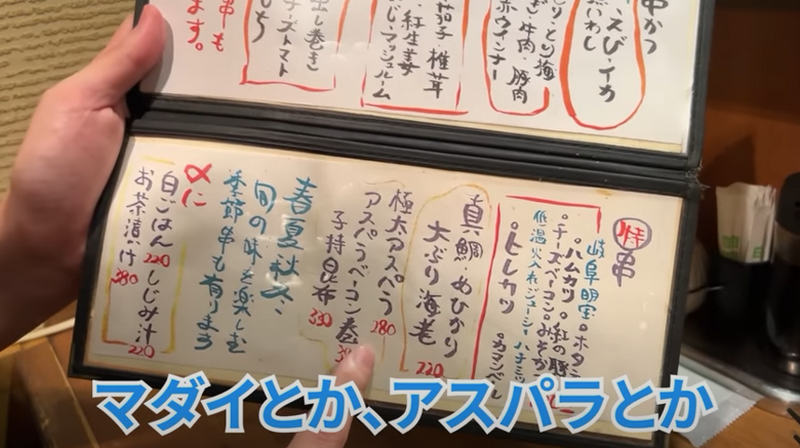 串かつ
えび・イカ
茄子・椎茸
紅生姜
マッシュルーム
牛肉・豚肉
赤ウインナー
出し巻き
チーズトマト
もち
串も
ます。
特串
岐阜明宝
ハムカツ
チーズベーコン
低温火入れジューシー
トレカツ
カマンベール
真鯛・めひかり
大ぶり海老
220
極太アスパラ
280
アスパラベーコン巻
子持昆布
330
春夏秋冬、
旬の味を楽しむ
季節串も有ります
〆に
白ごはん 220
しじみ汁
220
お茶漬け
380
マダイとか、アスパラとか